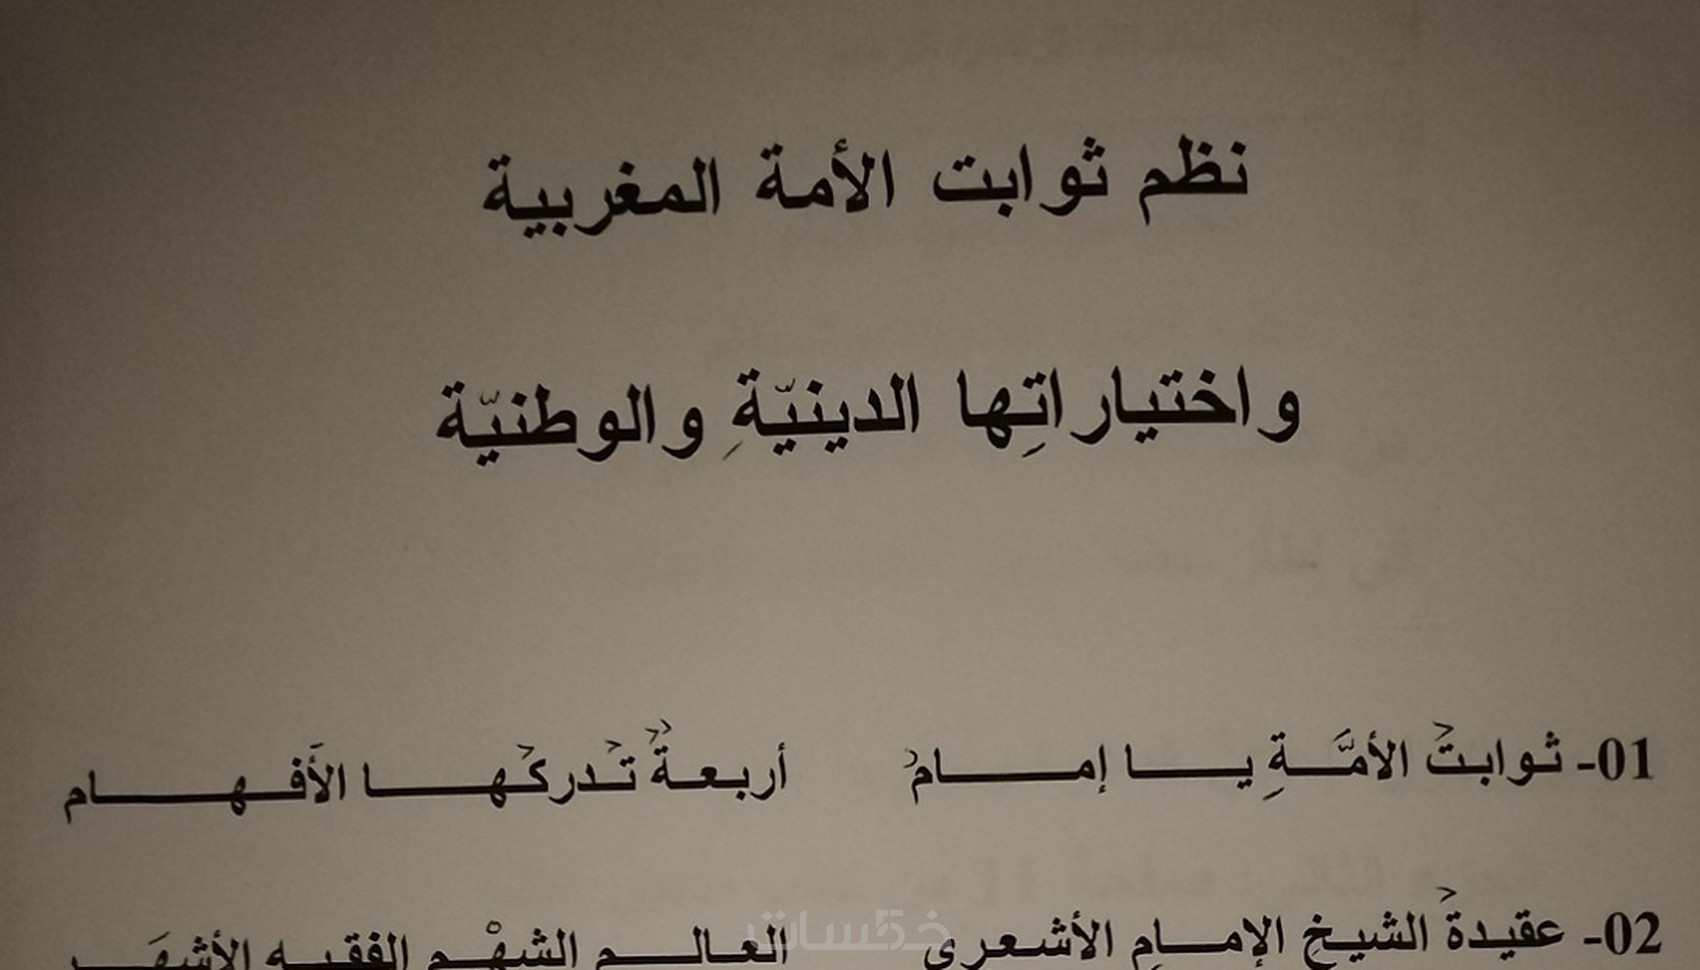 نظم ثوابت الأمة المغربية
واختياراتِها الدينيّةِ والوطنيّة
01- ثوابتُ الأمَّـــةِ يـــا إمـــــامُ أربعــةٌ تُـدركُهـــا الأَفهـــام
02- عقيدةُ الشيـخ الإمـــامِ الأشعري العالــم الشهْــم الفقيــه الأشهَــر
خمسات